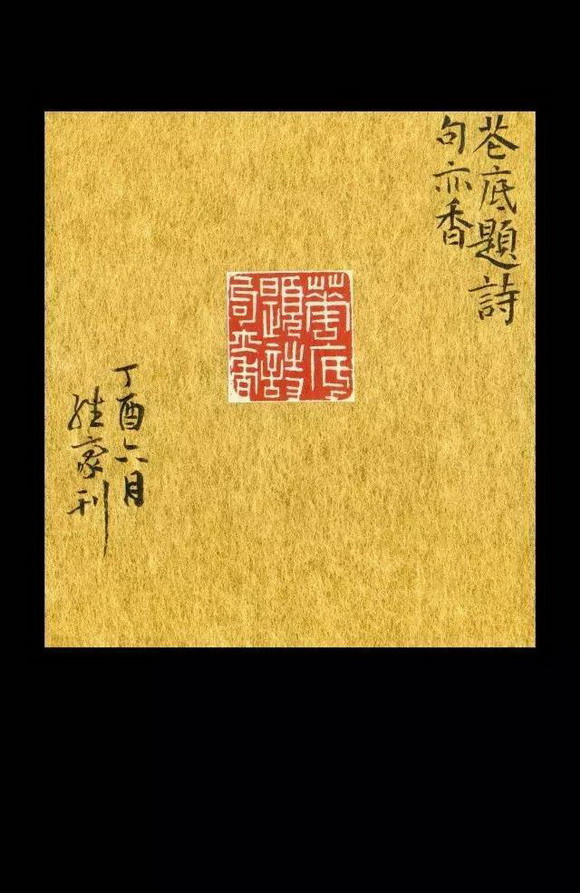 苍底題詩
句亦香
蕐底
題詩
句亦香
丁酉六月
家刊